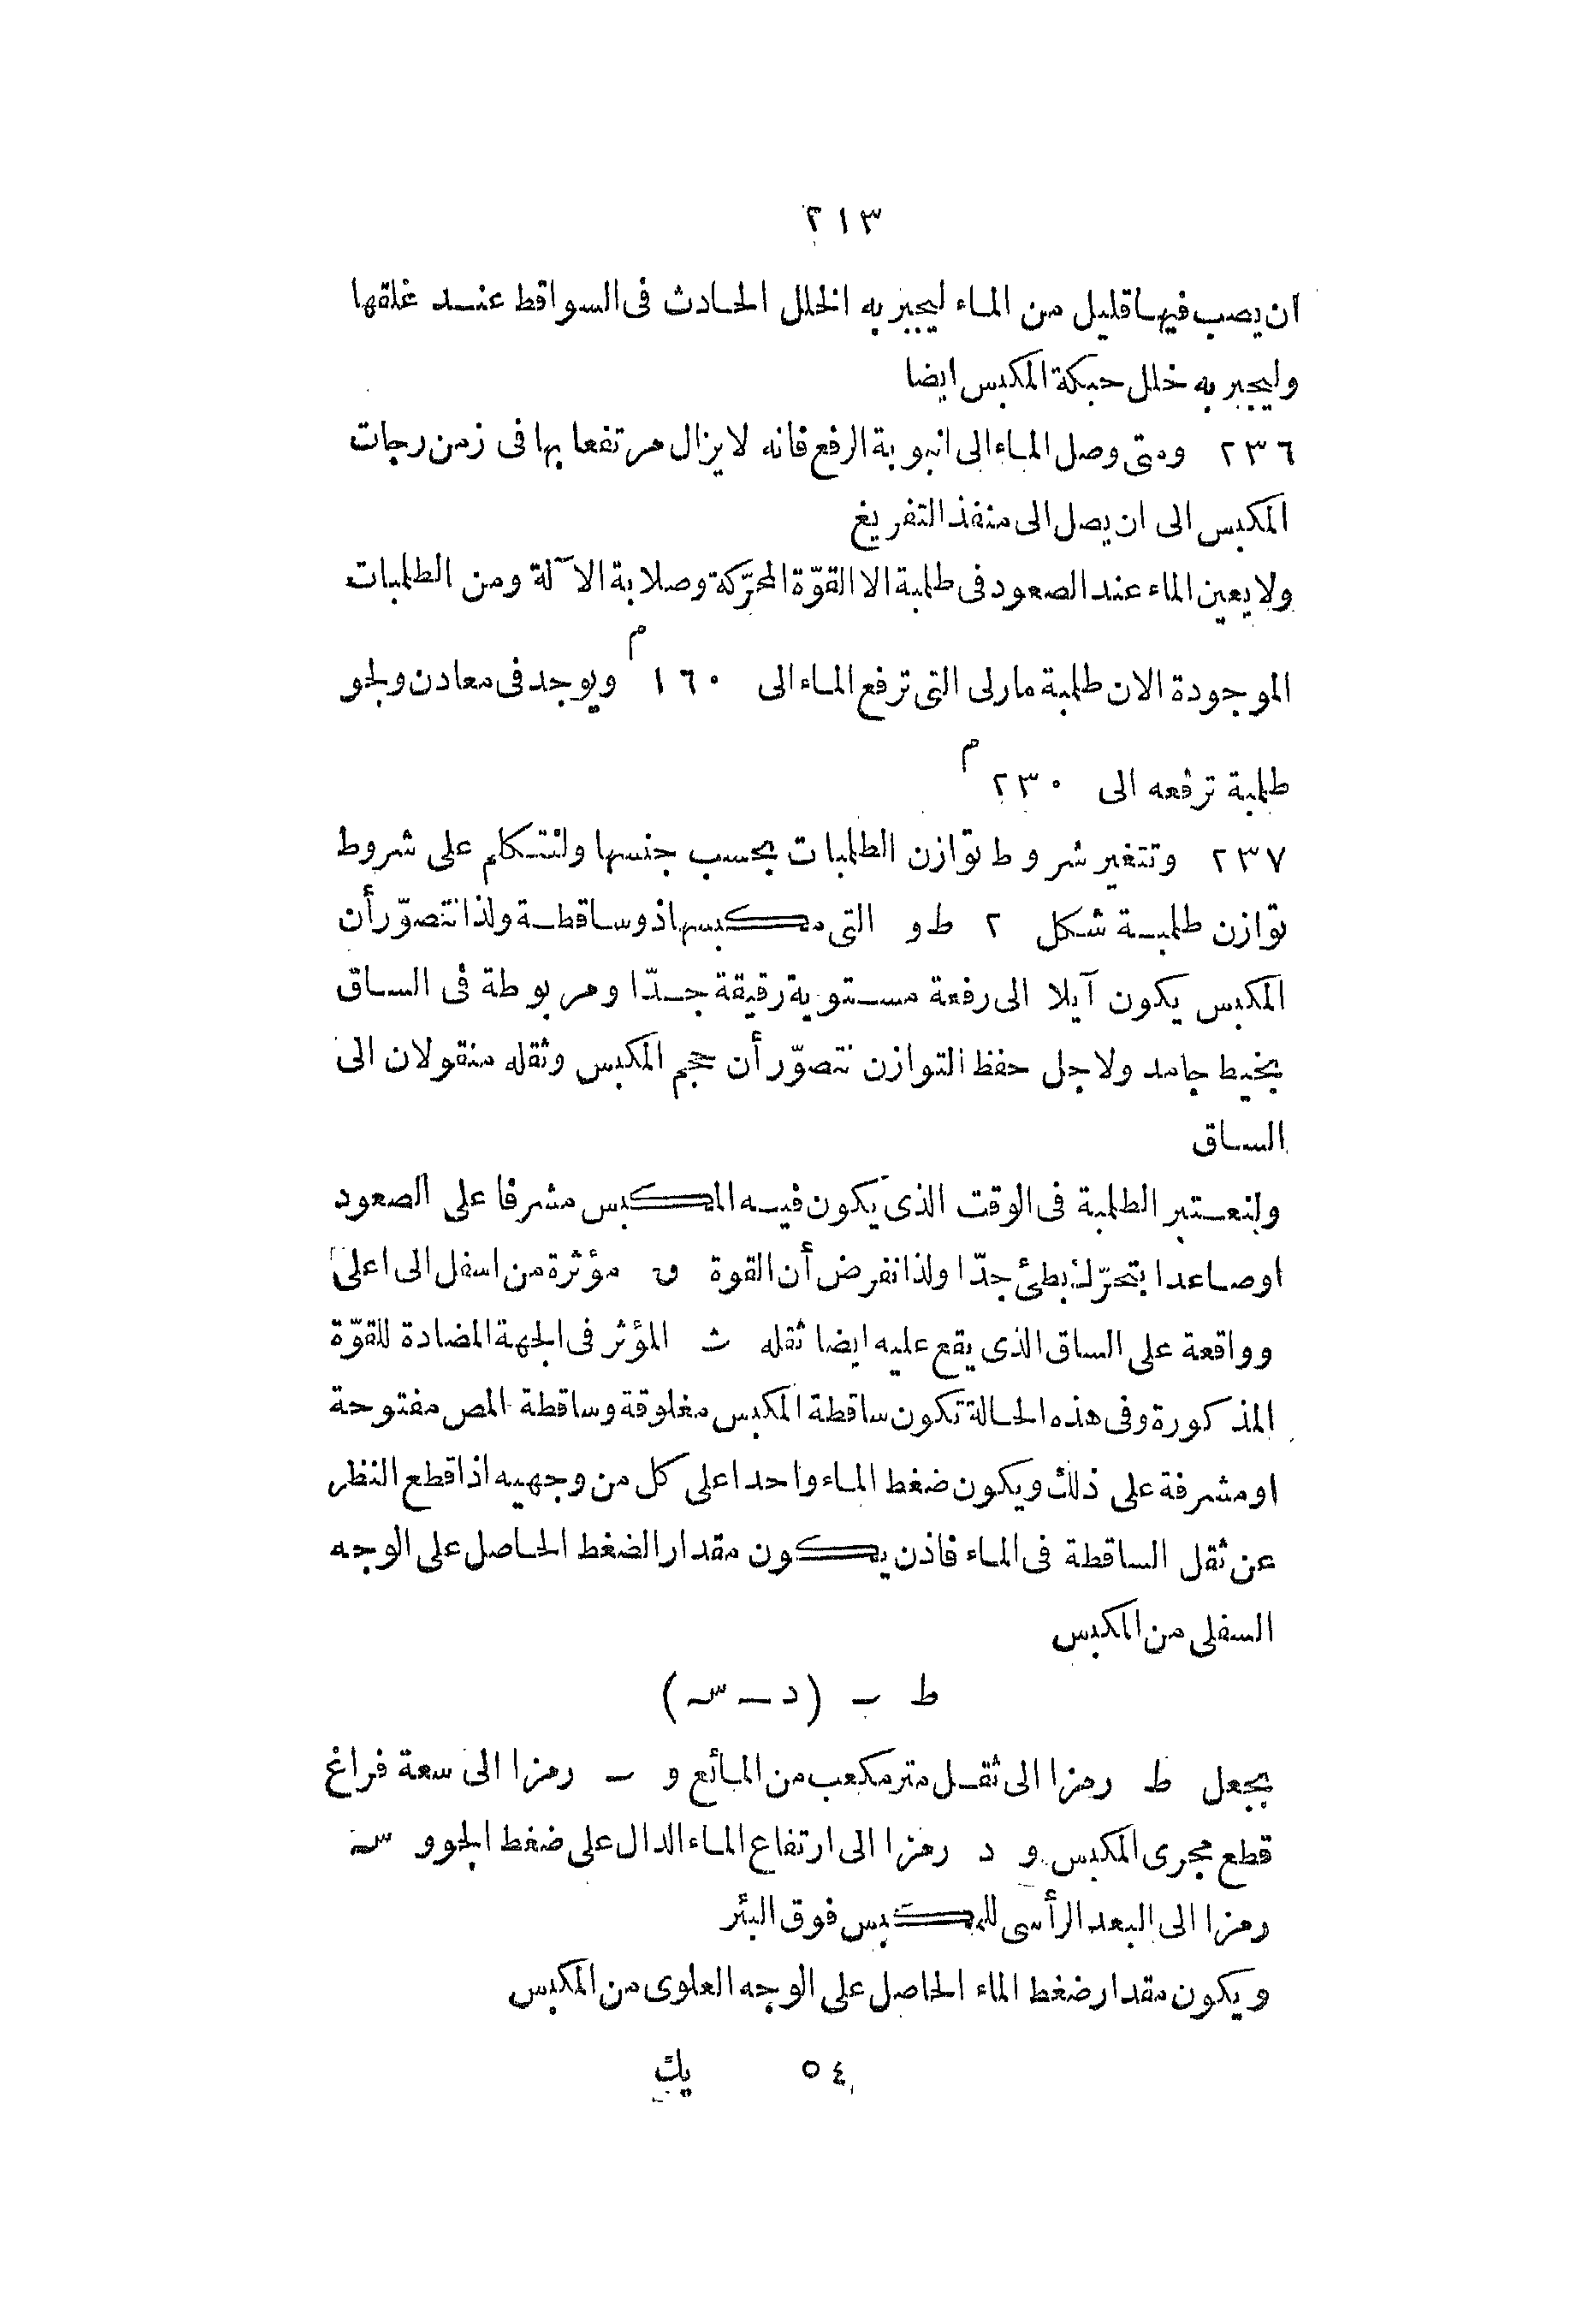 ٢١٣
ان يصب فيها قليل من الماء ليجبر به الخلل الحادث فى السواقط عند غلقها
وليجبر به خلل حبكة المكبس ايضا
٢٣٦ ومتى وصل الماء الى انبوبة الرفع فانه لا يزال مرتفعا بها فى زمن رجات
المكبس الى ان يصل الى منفذ التفريغ
ولا يعين الماء عند الصعود فى طلمبة الا القوّة المحرّكة وصلابة الاّلة ومن الطلمبات
الموجودة الان طلمبة مارلى التى ترفع الماء الى ١٦٠م ويوجد فى معادن ولجو
طلمبة ترفعه الى ٢٣٠م
٢٣٧ وتتغير شروط توازن الطلمبات بحسب جنسها ولنتكلم على شروط
توازن طلمبة شكل ٢ ط و التى مكبسها ذو ساقطة ولذا نتصوّر أن
المكبس يكون آيلا الى رفعة مستوية رقيقة جدّا ومربوطة فى الساق
بخيط جامد ولاجل حفظ التوازن نتصوّر أن حجم المكبس وثقله منقولان الى
الساق
ولنعتبر الطلمبة فى الوقت الذى يكون فيه المكبس مشرفا على الصعود
او صاعدا بتحرّك بطئ جدّا ولذا نفرض أن القوة ق مؤثرة من اسفل الى اعلى
وواقعة على الساق الذى يقع عليه ايضا ثقله ث المؤثر فى الجهة المضادة للقوّة
المذكورة وفى هذه الحالة تكون ساقطة المكبس مغلوقة وساقطة المص مفتوحة
او مشرفة على ذلك ويكون ضغط الماء واحدا على كل من وجهيه اذا قطع النظر
عن ثقل الساقطة فى الماء فاذن يكون مقدار الضغط الحاصل على الوجه
السفلى من المكبس
ط ب (د – س)
بجعل ط رمزا الى ثقل متر مكعب من المائع و ب رمزا الى سعة فراغ
قطع مجرى المكبس و د رمزا الى ارتفاع الماء الدال على ضغط الجو و س
رمزا الى البعد الرأسى للمكبس فوق البئر
ويكون مقدار ضغط الماء الحاصل على الوجه العلوى من المكبس
٥٤ يك